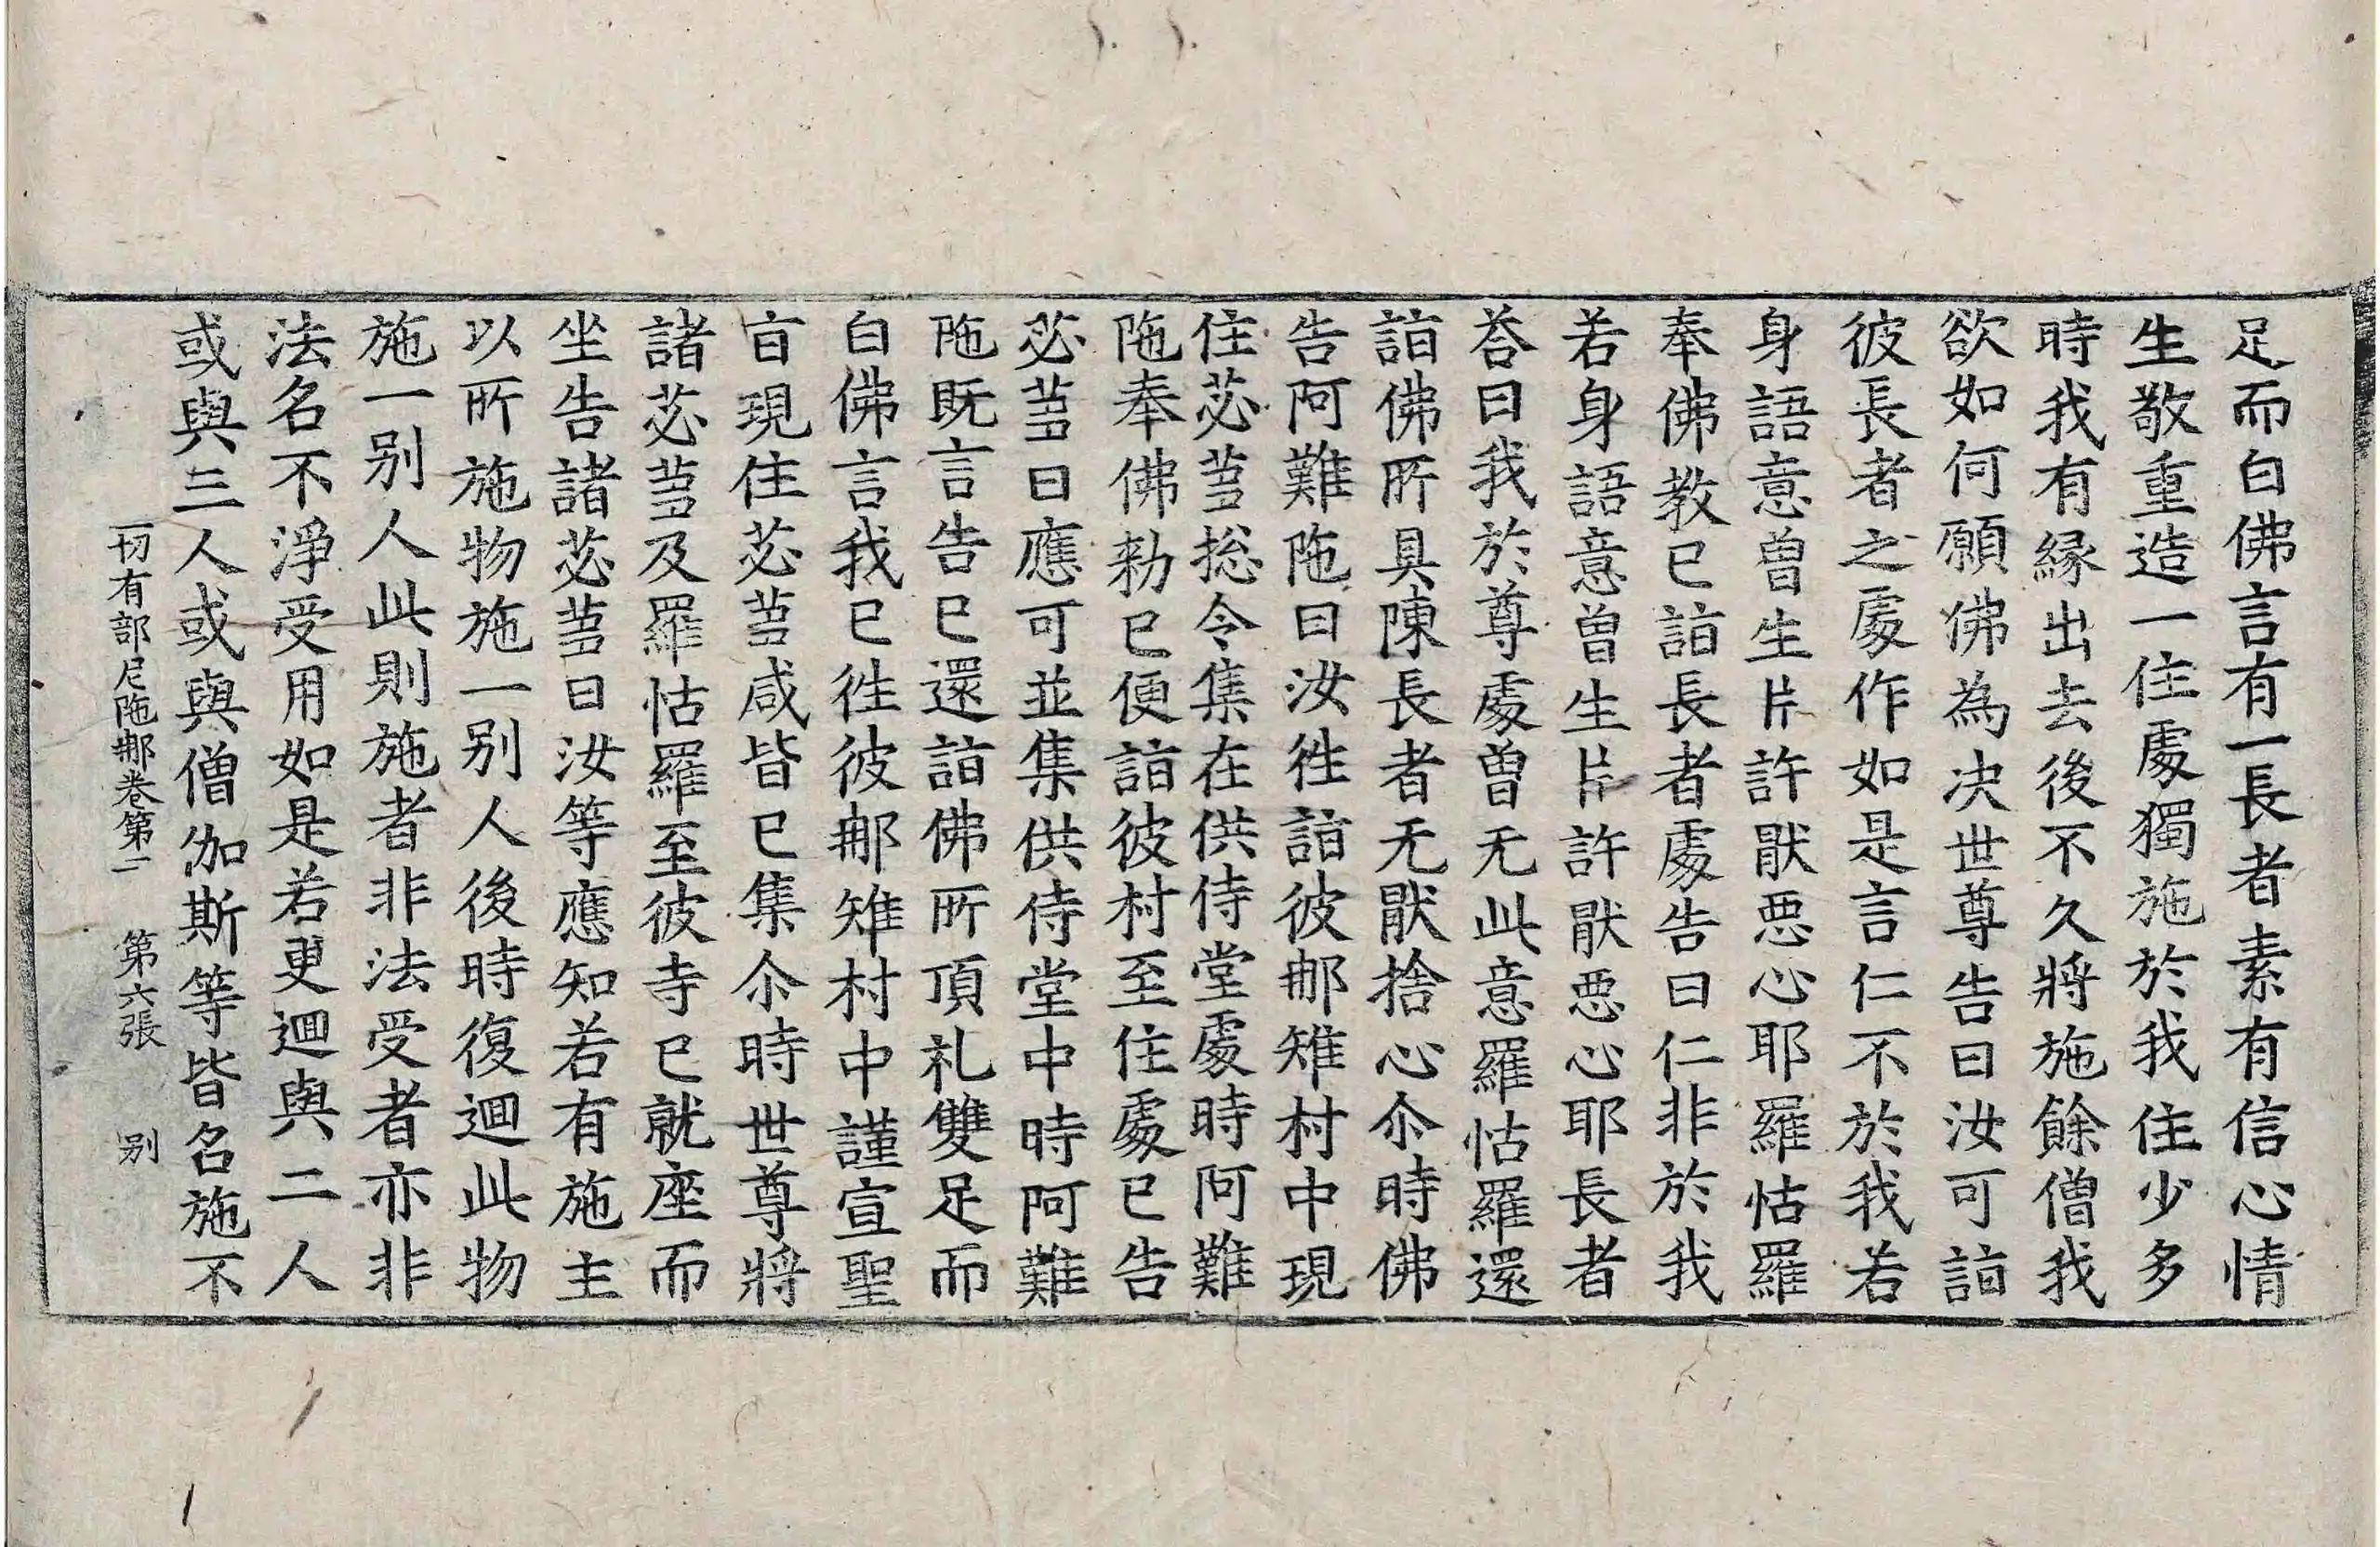 足而白佛言有一長者素有信心情
生敬重造一住處獨施於我我住少多
時我有緣出去後不久將施餘僧我
欲如何願佛為决世尊告曰汝可詣
彼長者之處作如是言仁不於我若
身語意曾生片許猒惡心耶羅怙羅
奉佛教已詣長者處告曰仁非於我
若身語意曾生片許猒惡心耶長者
荅曰我於尊處曾无此意羅怙羅還
詣佛所具陳長者无猒捨心尒時佛
告阿難陁曰汝徃詣彼𨚗雉村中現
住苾蒭捴令集在供侍堂處時阿難
陁奉佛勑已便詣彼村至住處已告
苾蒭曰應可並集供侍堂中時阿難
陁既言告已還詣佛所頂礼雙足而
白佛言我已徃彼𨚗雉村中謹宣聖
㫖現住苾蒭咸皆已集尒時世尊將
諸苾蒭及羅怙羅至彼寺已就座而
坐告諸苾蒭曰汝等應知若有施主
以所施物施一別人後時復迴此物
施一别人此則施者非法受者亦非
法名不淨受用如是若更迴與二人
或與三人或與僧伽斯等皆名施不
一切有部尼陁𨚗卷第二 第六張 别